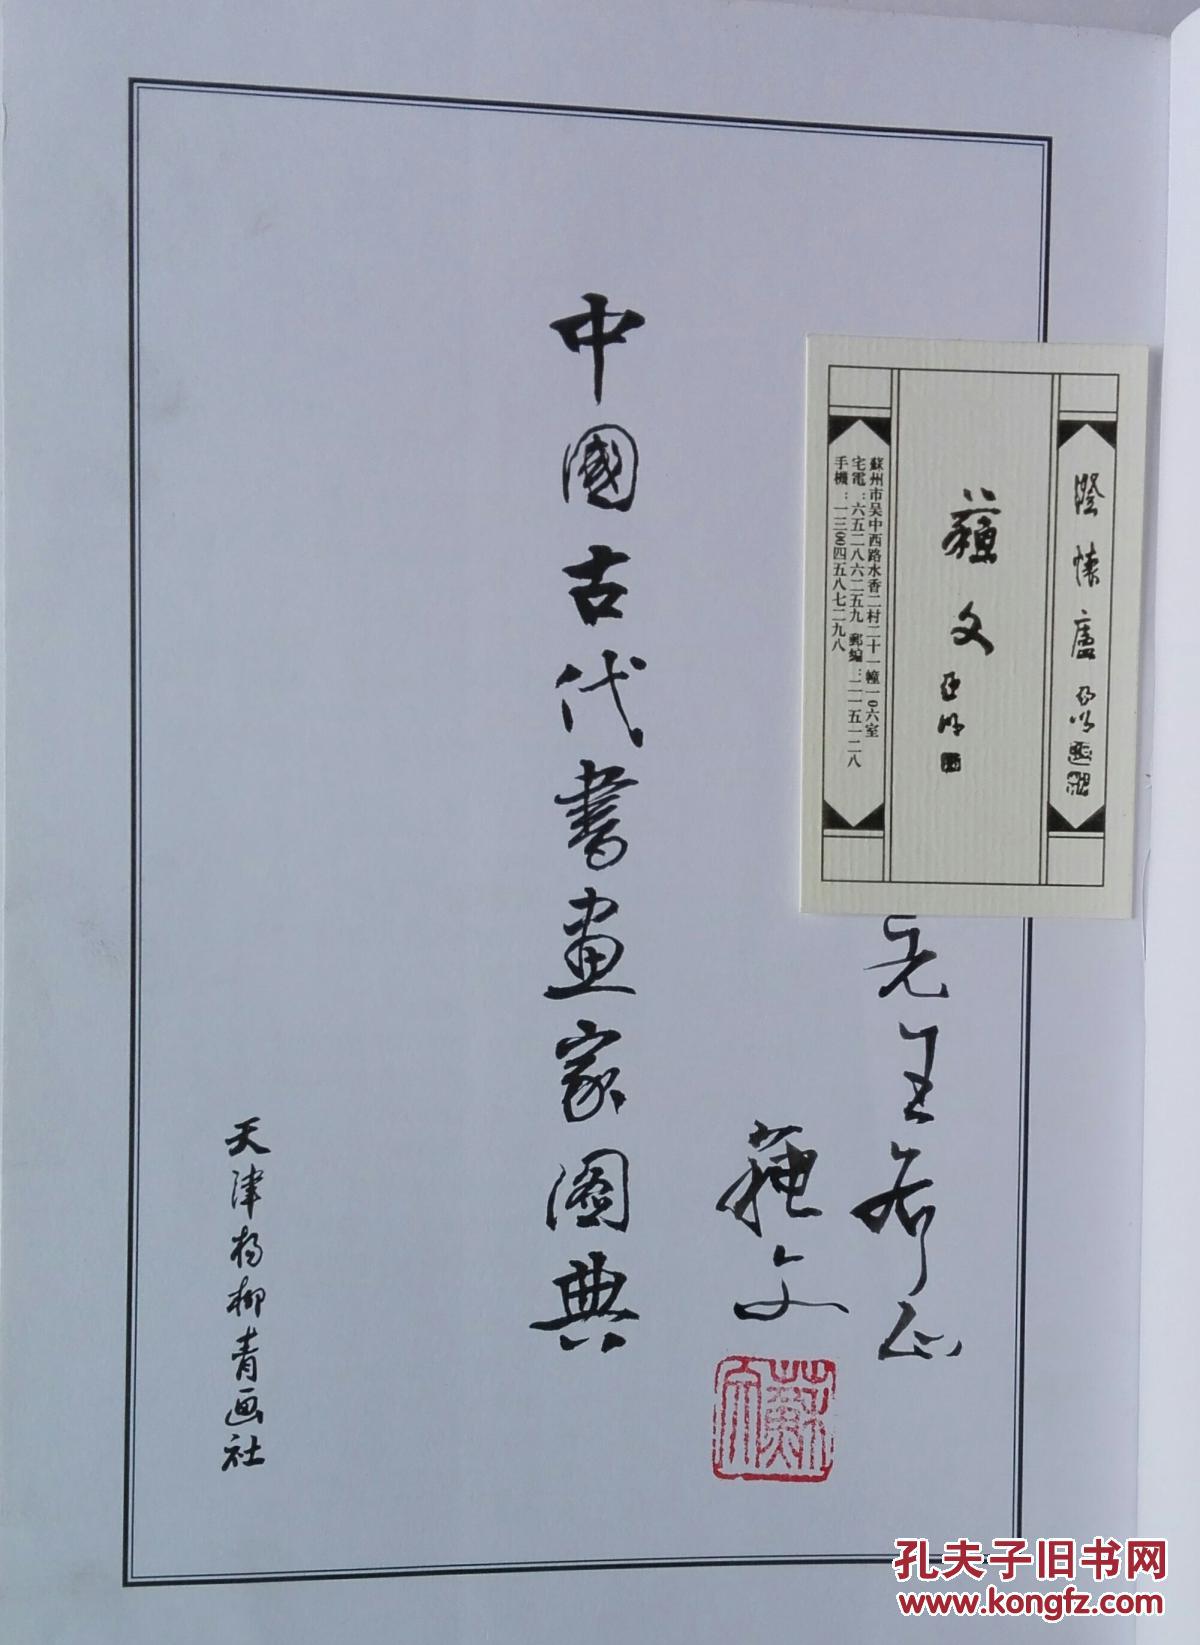 中國古代書畫家圖典
天津楊柳青画社
先生存正
蘇文
蘇文
澄懷廬
蘇文
亞明
蘇州市吴中西路水香二村二十一幢一0六室
宅電：六五二八六二五九 郵編：二一五一二八
手機：一三00四五八七二九八
孔夫子旧书网
www.kongfz.com